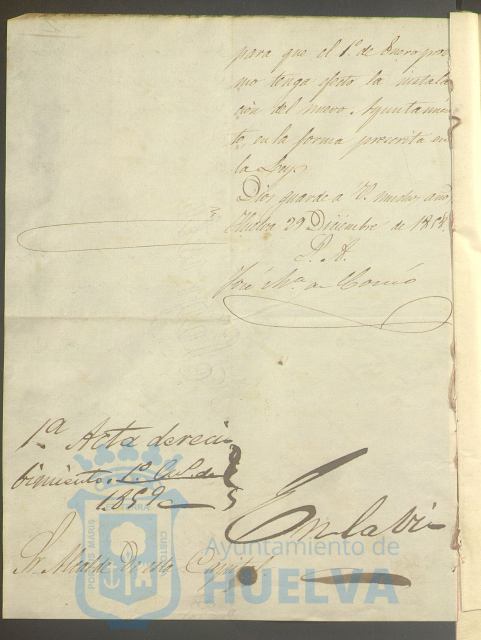 para que el 1º de Enero proxi
mo tenga efecto la instala
cion del nuevo Ayuntamien
to, en la forma prescrita en
la Ley.
Dios guarde a V. muchos años
Huelva 29 Diciembre de 1858.
P. A.
José Mª de
1ª Acta de reci
bimiento, 1º de
1859
En la Vi
Sr. Alcalde de esta Capital
PORTUS MARIS
ET TERRAE
CUSTODIA
Ayuntamiento de
HUELVA